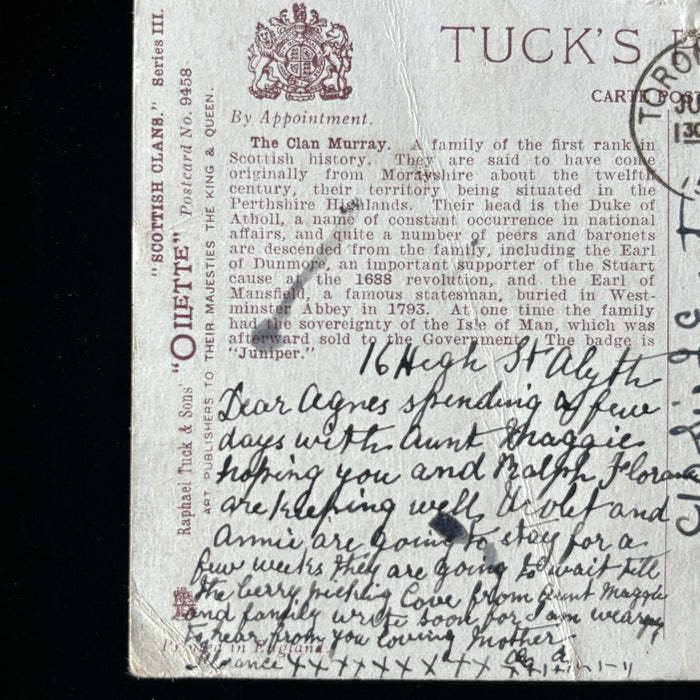 "SCOTTISH CLANS." Series III.
"OILETTE" Postcard No. 9458
Raphael Tuck & Sons'
ART PUBLISHERS TO THEIR MAJESTIES THE KING & QUEEN.
TUCK'S
CARTE POST
TORO
By Appointment.
The Clan Murray. A family of the first rank in
Scottish history. They are said to have come
originally from Morayshire about the twelfth
century, their territory being situated in the
Perthshire Highlands. Their head is the Duke of
Atholl, a name of constant occurrence in national
affairs, and quite a number of peers and baronets
are descended from the family, including the Earl
of Dunmore, an important supporter of the Stuart
cause at the 1688 revolution, and the Earl of
Mansfield, a famous statesman, buried in West-
minster Abbey in 1793. At one time the family
had the sovereignty of the Isle of Man, which was
afterward sold to the Government. The badge is
"Juniper."
16 High St Alyth
Dear Agnes spending a few
days with Aunt Maggie
hoping you and Ralph Flora
are keeping well Violet and
Annie are going to stay for a
few weeks they are going to wait till
the berry picking Love from Aunt Maggie
and family write soon for I am wearying
to hear from you loving Mother
Printed in England
x x x x x x x x x